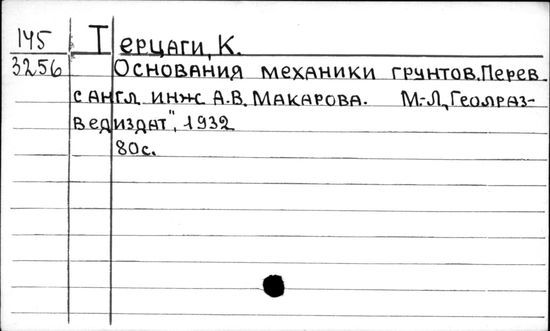 145 Терцаги, К.
3256 Основания механики грунтов. Перев.
с англ. инж. А.В. Макарова. М.-Л., Геолраз-
ведиздат", 1932
80с.